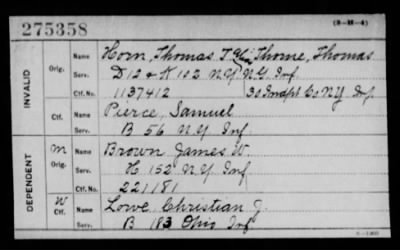 (3-22-4)
275358
INVALID
Orig. Name Horn, Thomas T. Thorne, Thomas
Serv. D 12 & K 102 N.Y. N.G. Inf.
Ctf. No. 1137412 30 Co N.Y. Inf
Ctf. Name Pierce, Samuel
Serv. B 56 N.Y. Inf.
DEPENDENT
M Orig. Name Brown James W.
Serv. H 152 N.Y. Inf
Ctf. No. 221181
W Ctf. Name Lowe Christian J.
Serv. B 183 Ohio Inf